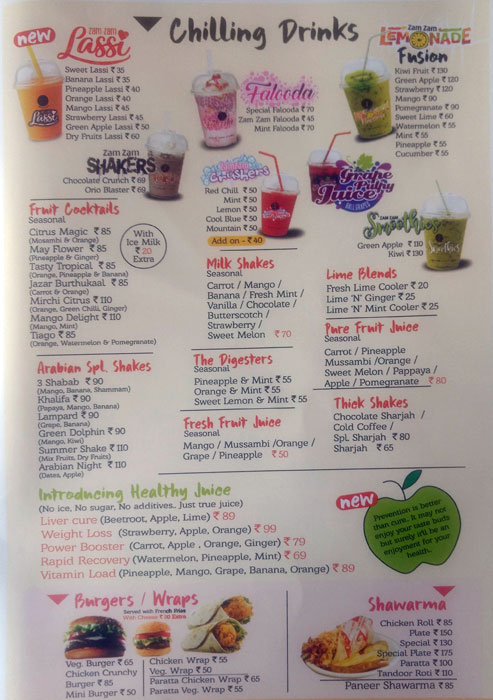 Chilling Drinks
new
ZAM ZAM
Lassi
Sweet Lassi ₹ 35
Banana Lassi ₹ 35
Pineapple Lassi ₹ 40
Orange Lassi ₹ 40
Mango Lassi ₹ 45
Strawberry Lassi ₹ 45
Green Apple Lassi ₹ 50
Dry Fruits Lassi ₹ 60
Lassi
Falooda
Special Falooda ₹ 70
Zam Zam Falooda ₹ 45
Mint Falooda ₹ 60
Zam Zam
LEMONADE
Fusion
Kiwi Fruit ₹ 130
Green Apple ₹ 120
Strawberry ₹ 120
Mango ₹ 90
Pomegranate ₹ 90
Sweet Lime ₹ 60
Watermelon ₹ 55
Mint ₹ 55
Pineapple ₹ 55
Cucumber ₹ 55
Zam Zam
SHAKERS
Chocolate Crunch ₹ 69
Orio Blaster ₹ 69
Crushers
Red Chill ₹ 50
Mint ₹ 50
Lemon ₹ 50
Cool Blue ₹ 50
Mountain ₹ 50
Add on - ₹ 40
Grape
Pulpy
Juice
ZAM ZAM
Smoothies
Green Apple ₹ 110
Kiwi ₹ 130
Fruit Cocktails
Seasonal
Citrus Magic ₹ 85
(Mosambi & Orange)
May Flower ₹ 85
(Pineapple & Ginger)
Tasty Tropical ₹ 85
(Orange, Pineapple & Banana)
Jazar Burthukaal ₹ 85
(Carrot & Orange)
Mirchi Citrus ₹ 110
(Orange, Green Chilli, Ginger)
Mango Delight ₹ 110
(Mango, Mint)
Tiago ₹ 85
(Orange, Watermelon & Pomegranate)
With
Ice Milk
₹ 20
Extra
Milk Shakes
Seasonal
Carrot / Mango /
Banana / Fresh Mint /
Vanilla / Chocolate /
Butterscotch /
Strawberry /
Sweet Melon ₹ 70
Lime Blends
Fresh Lime Cooler ₹ 20
Lime 'N' Ginger ₹ 25
Lime 'N' Mint Cooler ₹ 25
Pure Fruit Juice
Carrot / Pineapple
Mussambi /Orange/
Sweet Melon / Pappaya /
Apple / Pomegranate ₹ 80
Arabian Spl. Shakes
3 Shabab ₹ 90
(Mango, Banana, Shammam)
Khalifa ₹ 90
(Papaya, Mango, Banana)
Lampard ₹ 90
(Grape, Banana)
Green Dolphin ₹ 90
(Mango, Kiwi)
Summer Shake ₹ 110
(Mix Fruits, Dry Fruits)
Arabian Night ₹ 110
(Dates, Apple)
The Digesters
Seasonal
Pineapple & Mint ₹ 55
Orange & Mint ₹ 55
Sweet Lemon & Mint ₹ 55
Fresh Fruit Juice
Seasonal
Mango / Mussambi /Orange /
Grape / Pineapple ₹ 50
Thick Shakes
Chocolate Sharjah /
Cold Coffee /
Spl. Sharjah ₹ 80
Sharjah ₹ 65
Introducing Healthy Juice
(No ice, No sugar, No additives.. Just true juice)
Liver cure (Beetroot, Apple, Lime) ₹ 89
Weight Loss (Strawberry, Apple, Orange) ₹ 99
Power Booster (Carrot, Apple , Orange, Ginger) ₹ 79
Rapid Recovery (Watermelon, Pineapple, Mint) ₹ 69
Vitamin Load (Pineapple, Mango, Grape, Banana, Orange) ₹ 89
new
Prevention is better
than cure.. It may not
enjoy your taste buds
but surely it'll be an
enjoyment for your
health.
Burgers / Wraps
Served with French Fries
With Cheese ₹ 10 Extra
Veg. Burger ₹ 65
Chicken Crunchy
Burger ₹ 85
Mini Burger ₹ 50
Chicken Wrap ₹ 55
Veg. Wrap ₹ 50
Paratta Chicken Wrap ₹ 65
Paratta Veg. Wrap ₹ 55
Shawarma
Chicken Roll ₹ 85
Plate ₹ 150
Special ₹ 130
Special Plate ₹ 175
Paratta ₹ 100
Tandoor Roll ₹ 110
Paneer Shawarma ₹ 85